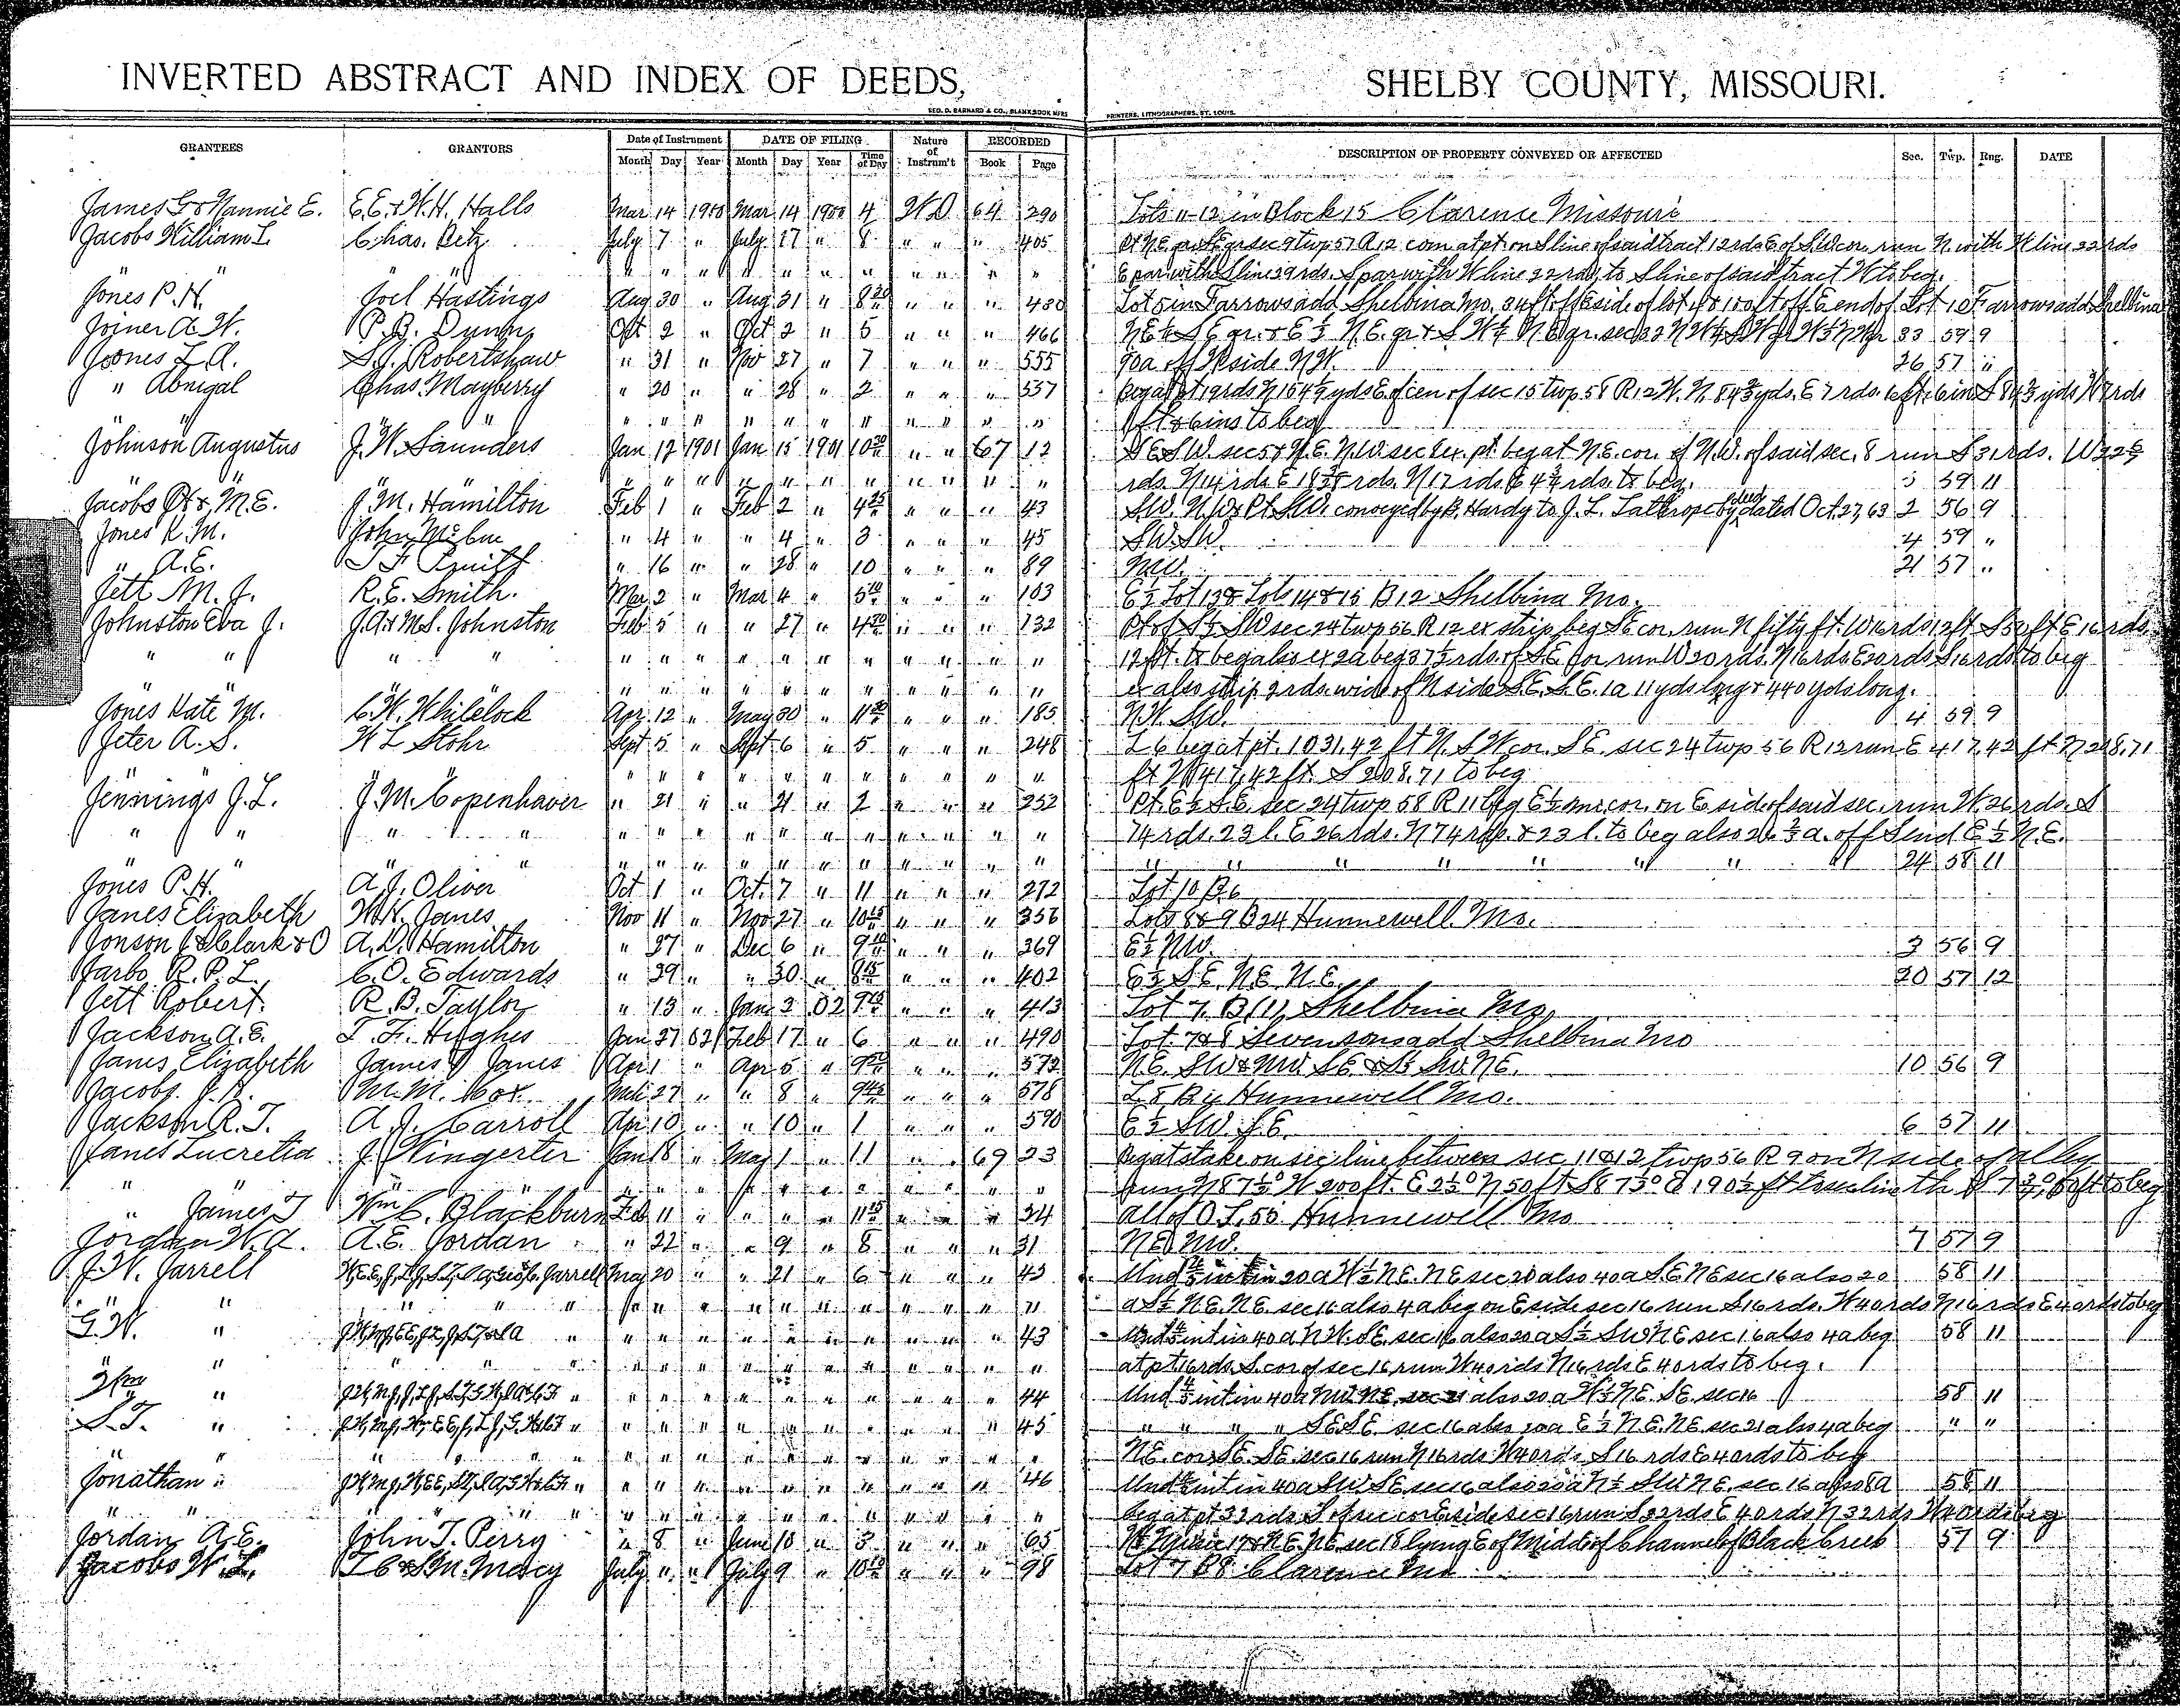 INVERTED ABSTRACT AND INDEX OF DEEDS, SHELBY COUNTY, MISSOURI.
GEO. D. BARNARD & CO., BLANK BOOK MFRS PRINTERS, LITHOGRAPHERS, ST. LOUIS.
GRANTEES GRANTORS Date of Instrument DATE OF FILING Nature of Instrum't RECORDED DESCRIPTION OF PROPERTY CONVEYED OR AFFECTED Sec. Twp. Rng. DATE
Month Day Year Month Day Year Time of Day Book Page
James G & Nannie E. E.E. & W.H. Halls Mar 14 1900 Mar 14 1900 4 WD 64 290 Lots 11-12 in Block 15 Clarence Missouri
Jacobs William L Chas. Betz July 7 " July 17 " 8 " " " 405 Pt N.E. qr S.E. qr sec 9 twp 57 R 12 com at pt on S line of said tract 12 rds E of S.W. cor. run N. with W line 22 rds
" " " " " " " " " " " " " E par. with S line 29 rds. S par with W line 22 rds. to S line of said tract W to beg.
Jones P. H. Joel Hastings Aug 30 " Aug 31 " 8 30 " " " 430 Lot 5 in Farrows add. Shelbina Mo. 34 ft off E side of lot 4 & 100 ft off E end of Lot 10 Farrows add Shelbina
Joiner A. W. P. B. Dunn Oct 2 " Oct 2 " 5 " " " 466 NE 1/4 S.E. qr. & E 1/2 N.E. qr & S.W 1/4 N.E. qr. sec 32 N W 1/4 S W qr W 1/2 N W qr 33 59 9
Joones L. A. S. J. Robertshaw " 31 " Nov 27 " 7 " " " 555 90a off W side N.W. 26 57 "
" Abnigal Chas. Mayberry " 20 " " 28 " 2 " " " 557 Beg at pt 19 rds N 154 1/2 yds E of cen of sec 15 twp. 58 R 12 W. N. 84 3/4 yds. E 7 rds. 6 ft. 6 in S 84 3/4 yds W 7 rds
" " " " " " " " " " " " " 6 ft & 6 ins to beg
Johnson Augustus J. W. Saunders Jan 12 1901 Jan 15 1901 10 30 " " 67 12 S E S.W. sec 5 & N.E. N.W. sec 8 ex. pt. beg at N.E. cor. of N.W. of said sec. 8 run S 31 rds. W 22
" " " " " " " " " " " " rds. N 14 rds E rds. N 17 rds E 4 3/4 rds. to beg. 5 59 11
Jacobs & M.E. J. M. Hamilton Feb 1 " Feb 2 " 4 25 " " " 43 S.W. N.W. & Pt S.W. conveyed by B. Hardy to J. L. Lathrope by deed dated Oct. 27, 63 2 56 9
Jones K. M. John McCue " 4 " " 4 " 3 " " " 45 S.W. S.W. 4 59 "
" A.E. T F Pruitt " 16 " " 28 " 10 " " " 89 N.W. 21 57 "
Jett M. J. R. E. Smith. Mar 2 " Mar 4 " 5 10 " " " 103 E 1/2 Lot 13 & Lots 14 & 15 B 12 Shelbina Mo.
Johnston Eva J. J.A. & M.S. Johnston Feb 5 " " 27 " 4 30 " " " 132 Pt of S 1/2 SW sec 24 twp 56 R 12 ex strip beg SE cor. run N fifty ft. W 16 rds 12 ft S 50 ft E 16 rds
" " " " " " " " " " " " " " 12 ft. to beg also ex 2a beg 37 1/2 rds. of S.E. cor run W 20 rds. N 16 rds. E 20 rds S 16 rds to beg
" " " " " " " " " " " " " ex also strip 2 rds. wide of N side S.E. S.E. 1a 11 yds long & 440 yds long.
Jones Kate M. C. W. Whitelock Apr. 12 " May 30 " 11 30 " " " 185 N.W. S.W. 4 59 9
Jeter A. S. W L Stohr Sept 5 " Sept 6 " 5 " " " 248 L 6 beg at pt. 1031.42 ft N. S W cor. S E. sec 24 twp 56 R 12 run E 417.42 ft. N 208.71
" " " " " " " " " " " " ft W 417.42 ft. S 208.71 to beg
Jennings J. L. J. M. Copenhaver " 21 " " 21 " 2 " " " 252 Pt. E 1/2 S.E. sec 24 twp 58 R 11 beg E 1/2 mi cor. on E side of said sec. run W. 26 rds. S
" " " " " " " " " " " " " " 74 rds. 23 l. E 26 rds. N 74 rds. & 23 l. to beg also 26 2/3 a. off S end E 1/2 N.E.
" " " " " " " " " " " " " " " " " " " " " " 24 58 11
Jones P. H. A. J. Oliver Oct 1 " Oct. 7 " 11 " " " 272 Lot 10 B. 6
Janes Elizabeth W. H. Janes Nov 11 " Nov 27 " 10 15 " " " 356 Lots 8 & 9 B 24 Hunnewell Mo.
Jonson J & Clark & O A. D. Hamilton " 27 " Dec 6 " 9 10 " " " 369 E 1/2 N.W. 3 56 9
Jarbo R. P. L. C. O. Edwards " 29 " " 30 " 8 15 " " " 402 E 1/2 S.E. N.E. N.E. 20 57 12
Jett Robert. R. B. Taylor " 13 " Jan 3 02 9 15 " " " 413 Lot 7 B (1) Shelbina Mo.
Jackson A. E. T. F. Hughes Jan 27 02 Feb 17 " 6 " " " 490 Lot 7 & 8 Sevensons add Shelbina Mo
Janes Elizabeth James J Janes Apr 1 " Apr 5 " 9 " " " 572 N.E. S.W & N.W. S.E. & S 1/2 S.W. N.E. 10 56 9
Jacobs J. R. M. M. Cox Mch 27 " " 8 " 9 45 " " " 578 L 8 B 4 Hunnewell Mo.
Jackson R. T. A. J. Carroll Apr 10 " " 10 " 1 " " " 590 E 1/2 S.W. S.E. 6 57 11
Janes Lucretia J. Wingerter Jan 18 " May 1 " 11 " " 69 23 Beg at stake on sec line between sec 11 & 12 twp 56 R 9 on N side of alley
" " " " " " " " " " " " run N 87 1/2° W 200 ft. E 2 1/2° N 50 ft S 87 1/2° E 190 1/2 ft to sec line th to beg
" James T Wm C. Blackburn Feb 11 " " " " 11 15 " " " 34 All of O.L. 55 Hunnewell Mo
Jordan W. A. A. E. Jordan " 22 " " 9 " 8 " " " 31 N.E. N.W. 7 57 9
J. W. Jarrell Jarrell May 20 " " 21 " 6 " " " 43 Und 4/5 int in 20 a W 1/2 N.E. N E sec 20 also 40 a S.E. N E sec 16 also 20 58 11
" " " " " " " " " " " " " a S 1/2 N.E. N.E. sec 16 also 4 a beg on E side sec 16 run S 16 rds. W 40 rds N 16 rds E 40 rds to beg
G. W. " " " " " " " " " " " 43 Und 4/5 int in 40 a N.W. S.E. sec 16 also 20 a S 1/2 S.W. N E sec 16 also 4 a beg 58 11
" " " " " " " " " " " " at pt 16 rds. S. cor of sec 16 run W 40 rds N 16 rds E 40 rds to beg.
Wm " " " " " " " " " " " 44 Und 4/5 int in 40 a N.W. N.E. sec 21 also 20 a W 1/2 N.E. S.E. sec 16 58 11
S. T. " " " " " " " " " " 45 " " " " S.E S.E. sec 16 also 20 a E 1/2 N.E. N E. sec 21 also 4 a beg " "
" " " " " " " " " " " " N E. cor S E. S E. sec 16 run N 16 rds W 40 rds S 16 rds E 40 rds to beg
Jonathan " " " " " " " " " " " 46 Und 4/5 int in 40 a S.W. S.E. sec 16 also 20 a N 1/2 S.W. N E. sec 16 also 8 a 58 11
" " " " " " " " " " " " beg at pt 32 rds. S. of sec cor E side sec 16 run S 32 rds E 40 rds N 32 rds W 40 rds beg
Jordan A. E. John T. Perry " 8 " June 10 " 3 " " " 65 N.E. N.E. sec 18 lying E of Midd of Channel of Black Creek 57 9
Jacobs W. L. Macy July " " July 9 " 10 " " " 98 Lot 7 B 8 Clarence Mo